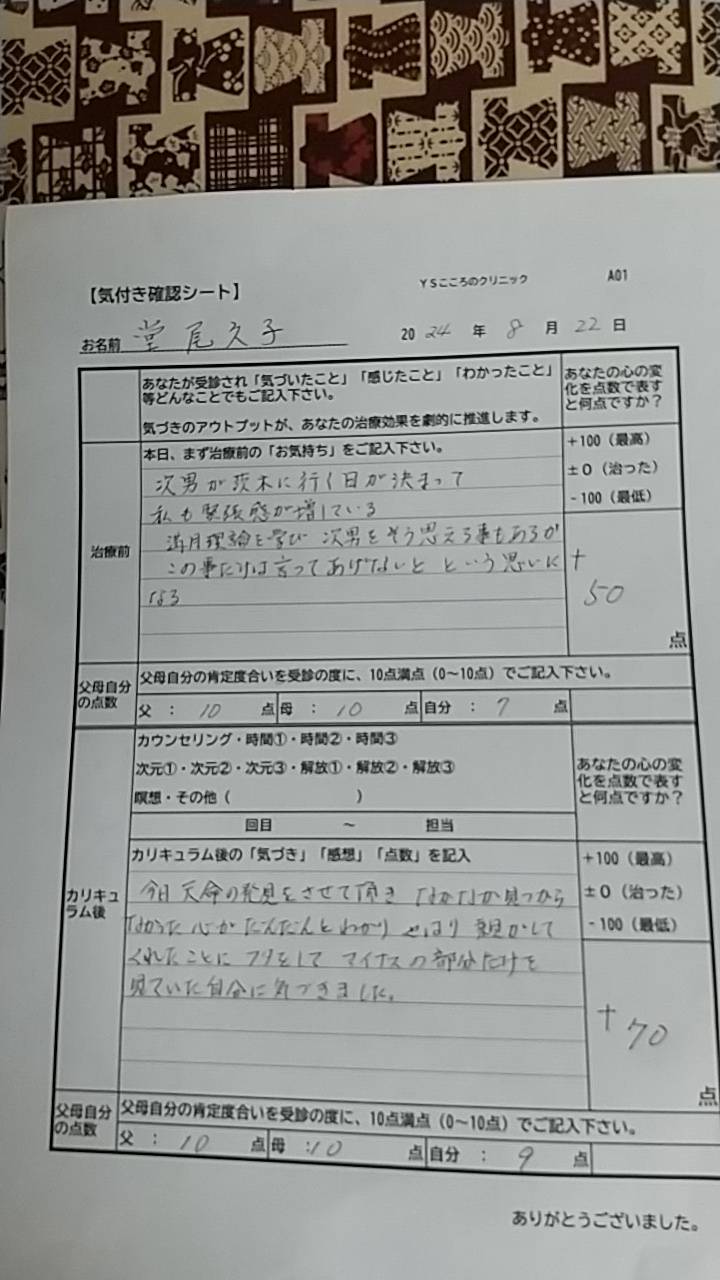 【気付き確認シート】 YSこころのクリニック A01
お名前 堂尾久子 2024年8月22日
あなたが受診され「気づいたこと」「感じたこと」「わかったこと」
等どんなことでもご記入下さい。
気づきのアウトプットが、あなたの治療効果を劇的に推進します。
あなたの心の変
化を点数で表す
と何点ですか？
治療前
本日、まず治療前の「お気持ち」をご記入下さい。
次男が茨木に行く日が決まって
私も緊張感が増している
満月理論を学び 次男をそう思える事もあるが
この事だけは言ってあげないと という思いに
なる
+100（最高）
±0（治った）
-100（最低）
+
50
点
父母自分
の点数
父母自分の肯定度合いを受診の度に、10点満点（0～10点）でご記入下さい。
父：10点 母：10点 自分：7点
カリキュ
ラム後
カウンセリング・時間①・時間②・時間③
次元①・次元②・次元③・解放①・解放②・解放③
瞑想・その他（ ）
回目 ～ 担当
あなたの心の変
化を点数で表す
と何点ですか？
カリキュラム後の「気づき」「感想」「点数」を記入
今日 天命の発見をさせて頂き なかなか見つから
なかった 心がだんだんとわかり やはり 親がして
くれたことに フタをして マイナスの部分だけを
見ていた自分に気づきました。
+100（最高）
±0（治った）
-100（最低）
+70
点
父母自分
の点数
父母自分の肯定度合いを受診の度に、10点満点（0～10点）でご記入下さい。
父：10点 母：10点 自分：9点
ありがとうございました。